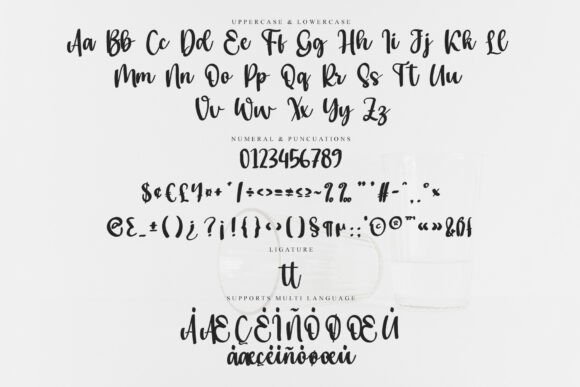 UPPERCASE & LOWERCASE
Aa Bb Cc Dd Ee Ff Gg Hh Ii Jj Kk Ll
Mm Nn Oo Pp Qq Rr Ss Tt Uu
Vv Ww Xx Yy Zz
NUMERAL & PUNCUATIONS
0123456789
$¢€£¥¤+*/÷<>=±≤≥~%‰"'#-^,.°×
@&_±()¿?¡!{}‹›()§¶µ:;'©®™«»&
LIGATURE
tt
SUPPORTS MULTI LANGUAGE
ÀÆÇÈÌÑÒØŒÙ
àæçèìñòøœù